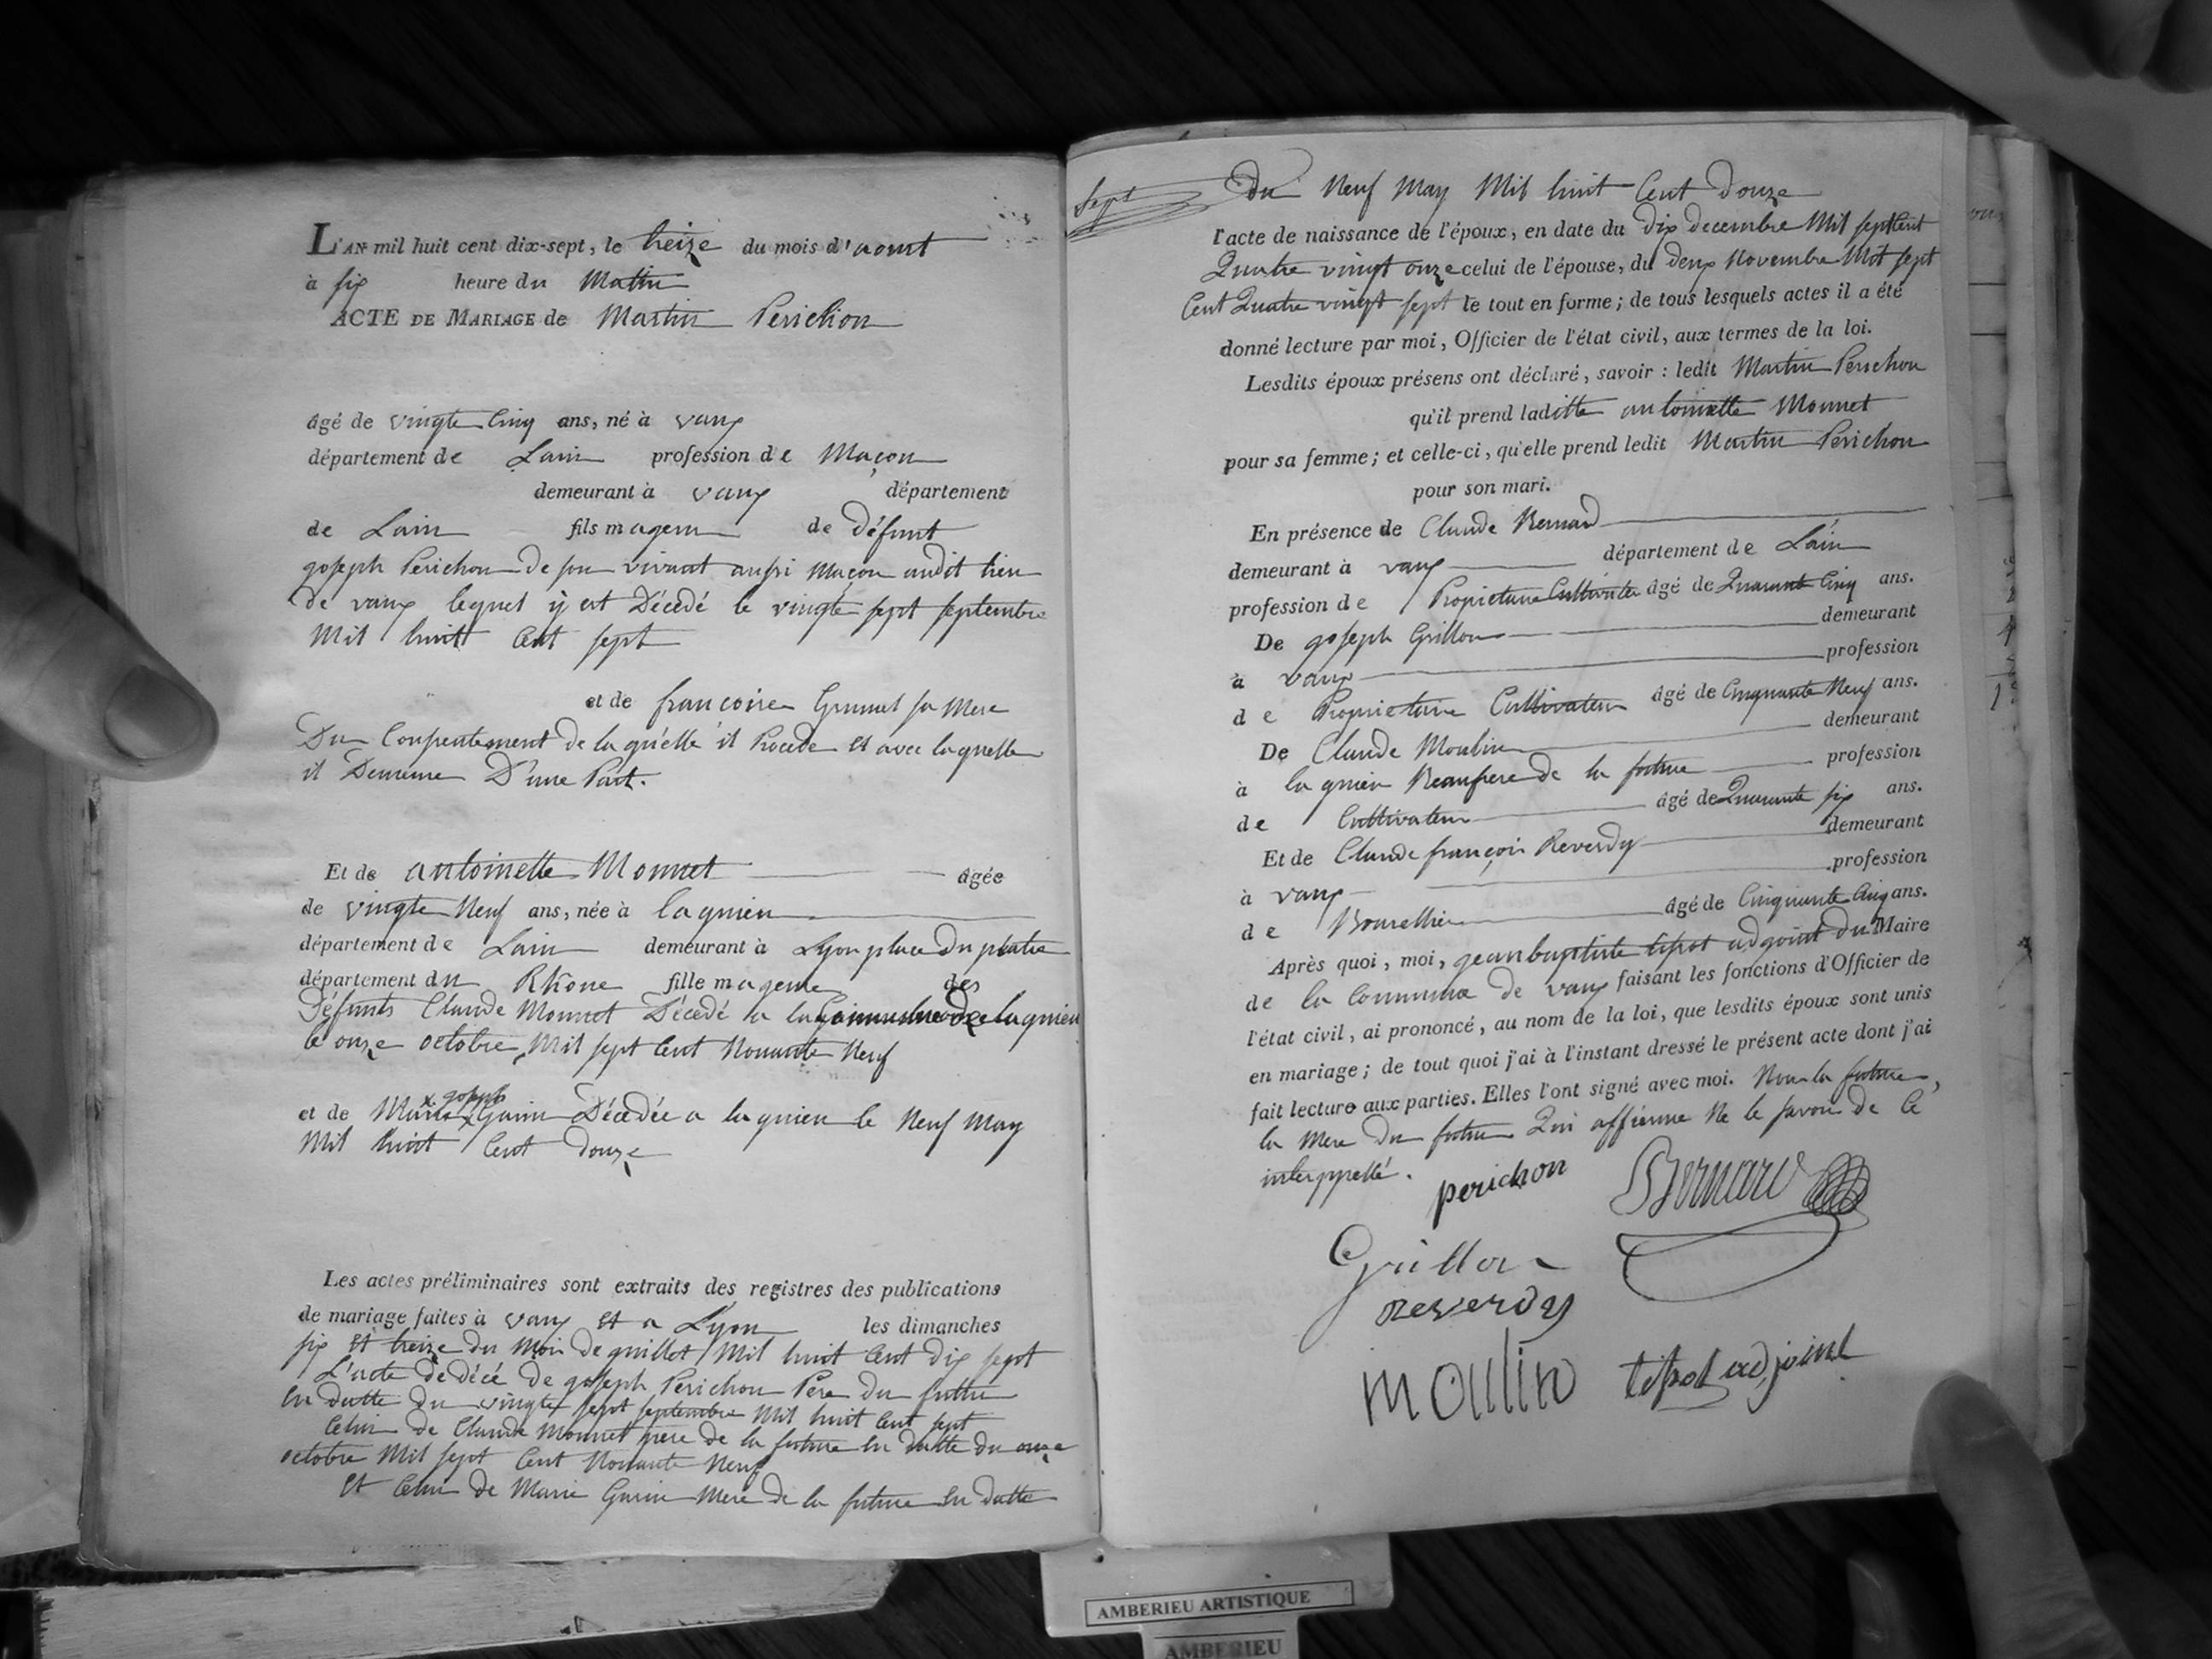 L'AN mil huit cent dix-sept, le treize du mois d'aoust
à six heure du Matin
ACTE DE MARIAGE de Martin Perichon
âgé de vingte Cinq ans, né à vaux
département de Lain profession de Maçon
demeurant à vaux département
de Lain fils mageur de Défunt
goseph Perichon de son vivant aussi Maçon audit lieu
de vaux lequel y est Décédé le vingte sept septembre
Mil huitt Cent sept
et de francoise Grumet sa Mere
Du Consentement de laquelle il Procede Et avec laquelle
il Demeure D'une Part.
Et de antoinette Monnet âgée
de vingte Neuf ans, née à lagnieu
département de Lain demeurant à Lyon place du platre
département du Rhône fille mageure des
Défunts Claude Monnet Décédé a la Commune de lagnieu
le onze octobre Mil sept Cent Nonante Neuf
x goseph
et de Marie x Guerin Décédée a lagnieu le Neuf May
Mil huit Cent douze
Les actes préliminaires sont extraits des registres des publications
de mariage faites à vaux et a Lyon les dimanches
six Et treize du Mois de guillet Mil huit Cent dix sept
L'acte de décé de goseph Perichon Pere du futur
En datte du vingte sept septembre Mil huit Cent sept
Celui de Claude Monnet pere de la future En datte du onze
octobre Mil sept Cent Nonante Neuf
Et Celui de Marie Guerin Mere de la future En datte
sept
Du Neuf May Mil huit Cent douze
l'acte de naissance de l'époux, en date du dix decembre Mil sept Cent
Quatre vingt onze celui de l'épouse, du deux Novembre Mil sept
Cent Quatre vingt sept le tout en forme; de tous lesquels actes il a été
donné lecture par moi, Officier de l'état civil, aux termes de la loi.
Lesdits époux présens ont déclaré, savoir : ledit Martin Perichon
qu'il prend laditte antoinette Monnet
pour sa femme; et celle-ci, qu'elle prend ledit Martin Perichon
pour son mari.
En présence de Claude Bernard
demeurant à vaux département de Lain
profession de Propietaire Cultivateur âgé de Quarante Cinq ans.
De goseph Grillon demeurant
à vaux profession
de Proprietaire Cultivateur âgé de Cinquante Neuf ans.
De Claude Moulin demeurant
à lagnieu Beaufrere de la future profession
de Cultivateur âgé de Quarante six ans.
Et de Claude françois Reverdy demeurant
à vaux profession
de Bourellier âgé de Cinquante Cinq ans.
Après quoi, moi, gean baptiste tipot adgoint du Maire
de la Commune de vaux faisant les fonctions d'Officier de
l'état civil, ai prononcé, au nom de la loi, que lesdits époux sont unis
en mariage; de tout quoi j'ai à l'instant dressé le présent acte dont j'ai
fait lecture aux parties. Elles l'ont signé avec moi. Non la future,
la Mere du futur Qui affirme Ne le savoir de Ce
interppellé.
perichon Bernard
Grillon
reverdy
moulin tipot adjoint
AMBERIEU ARTISTIQUE
AMBERIEU